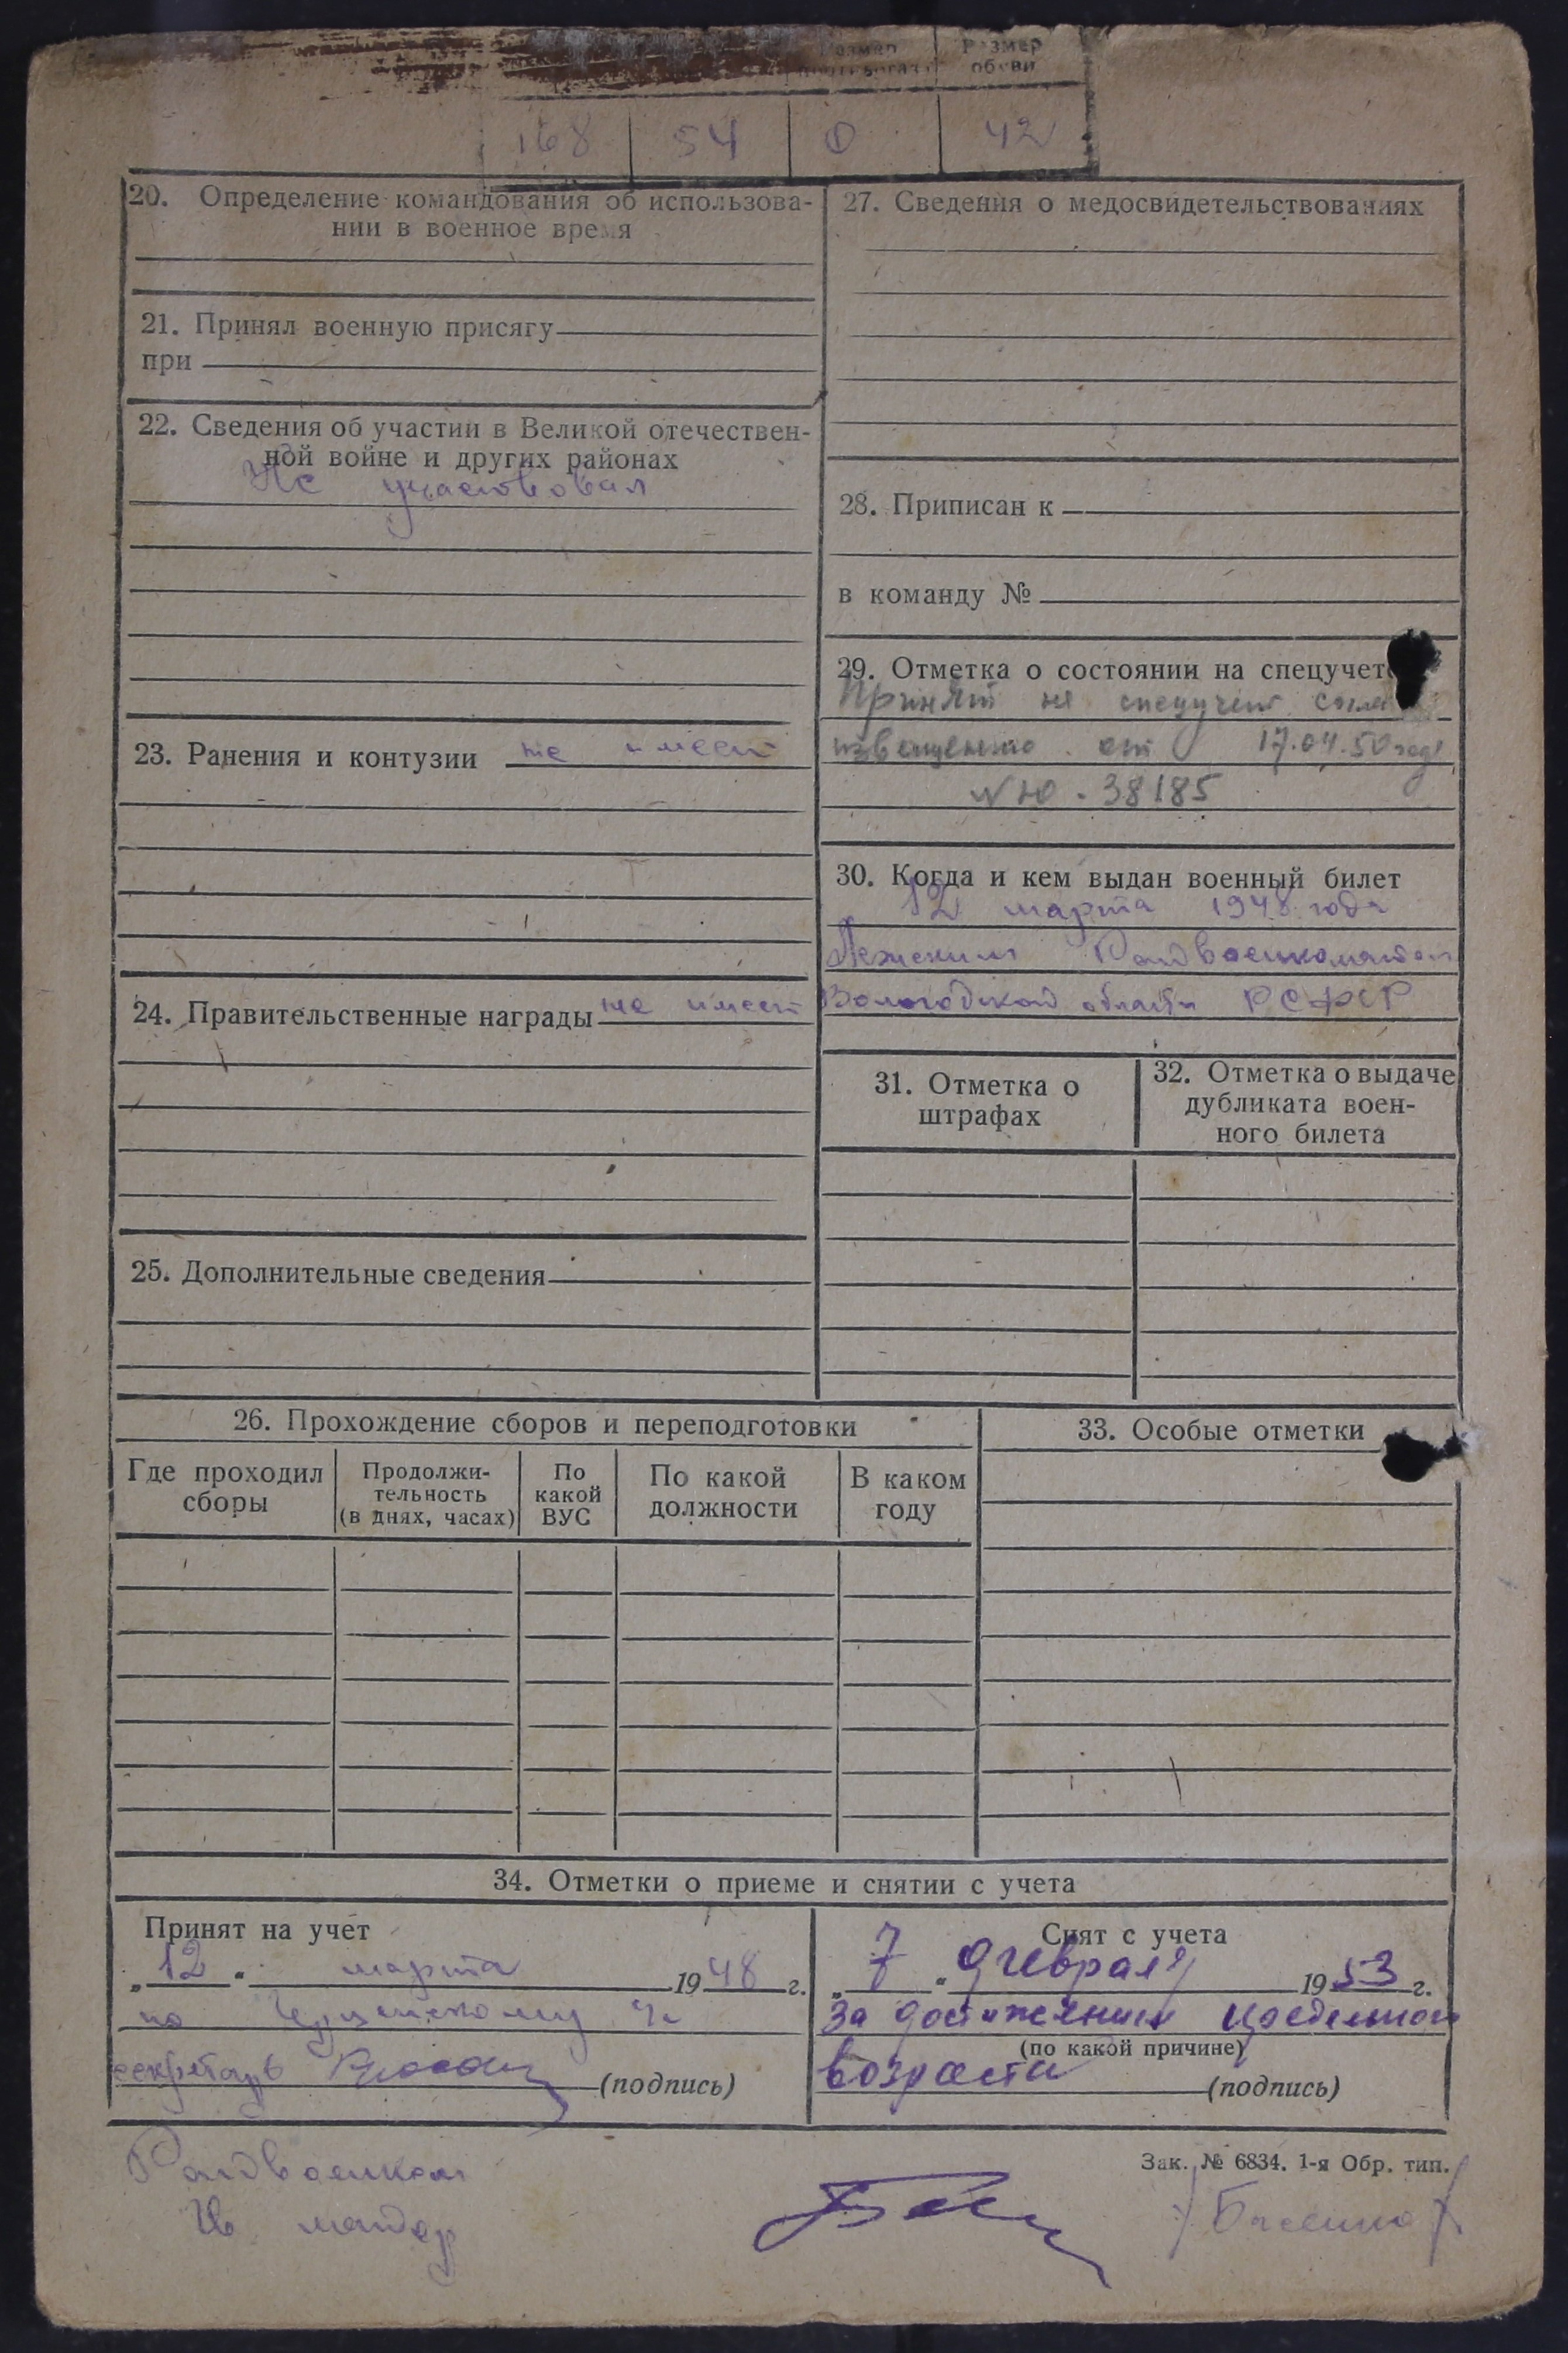 Размер
Размер
обуви
168 54 0 42
20. Определение командования об использова-
нии в военное время
21. Принял военную присягу
при
22. Сведения об участии в Великой отечествен-
ной войне и других районах
Не участвовал
23. Ранения и контузии не имеет
24. Правительственные награды не имеет
25. Дополнительные сведения
27. Сведения о медосвидетельствованиях
28. Приписан к
в команду №
29. Отметка о состоянии на спецучете
Принят на спецучет
извещению от 17.04.50 года
38185
30. Когда и кем выдан военный билет
12 марта 1948 года
Райвоенкоматом
Вологодской области РСФСР
31. Отметка о
штрафах
32. Отметка о выдаче
дубликата воен-
ного билета
26. Прохождение сборов и переподготовки
Где проходил
сборы
Продолжи-
тельность
(в днях, часах)
По
какой
ВУС
По какой
должности
В каком
году
33. Особые отметки
34. Отметки о приеме и снятии с учета
Принят на учет
„12" марта 1948 г.
по
секретарь
(подпись)
Снят с учета
„7" февраля 1953 г.
за достижением предельного
(по какой причине)
возраста
(подпись)
Зак. № 6834. 1-я Обр. тип.
Райвоенком
майор